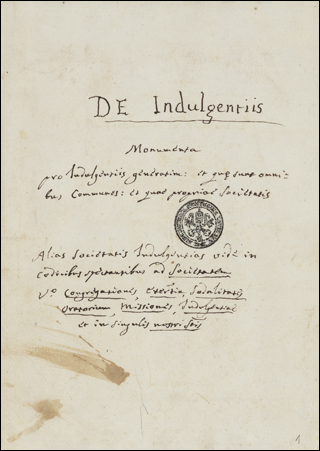 DE Indulgentiis
Monumenta
pro Indulgentiis generatim: et quę sunt omni-
bus Communes: et quae propriae Societatis
Alias Societatis Indulgentias vide in
Codicibus spectantibus ad Societatem
Vº Congregationes, Exercitia, Sodalitatis
Oratorium, Missiones, Indulgentiae
et in singulis nostri
1